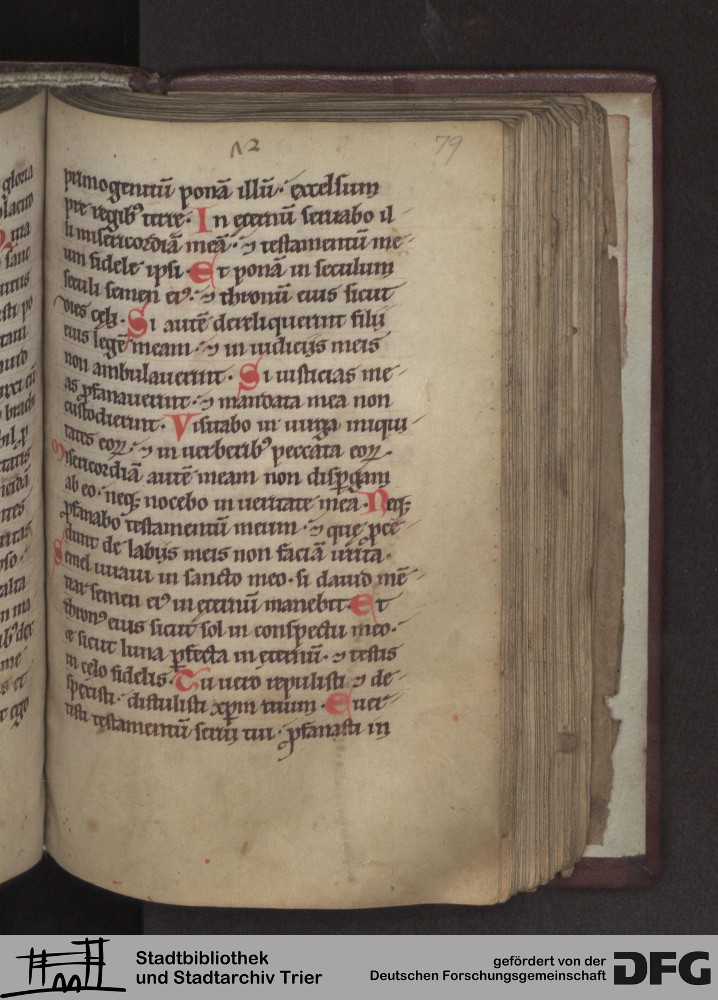 79
primogenitū ponā illū· excelsum
pre regibꝰ terre· In eternū seruabo il
li misericordiā meā· ⁊ testamentū me
um fidele ipsi· Et ponā in seculum
seculi semen eiꝰ· ⁊ thronū eius sicut
dies celi· Si autē dereliquerint filii
eius legē meam· ⁊ in iudiciis meis
non ambulauerint· Si iusticias me
as ꝓfanauerint· ⁊ mandata mea non
custodierint· Visitabo in uirga iniqui
tates eoꝝ· ⁊ in uerberibꝰ peccata eoꝝ·
Misericordiā autē meam non disꝑgam
ab eo· neqꝫ nocebo in ueritate meā· Neqꝫ
ꝓfanabo testamentū meum· ⁊ que ꝓce
dunt de labiis meis non faciā irrita·
Semel iuraui in sancto meo· si dauid mē
tiar semen eiꝰ in eternū manebit· Et
thronꝰ eius sicut sol in conspectu meo·
et sicut luna ꝑfecta in eternū· ⁊ testis
in celo fidelis· Tu uero repulisti ⁊ de
spexisti· distulisti xp̄m tuum· Euer
tisti testamentū serui tui· ꝓfanasti in
gloria
Stadtbibliothek
und Stadtarchiv Trier
gefördert von der
Deutschen Forschungsgemeinschaft
DFG